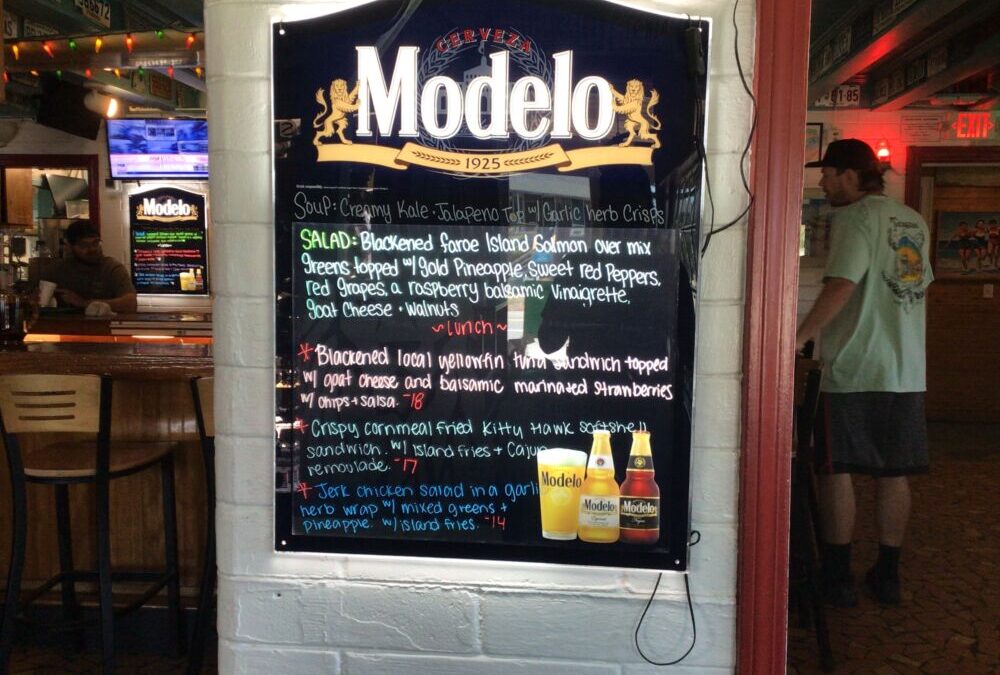 CERVEZA
Modelo
1925
Soup: Creamy Kale - Jalapeno Top w/ Garlic herb Crisps
SALAD: Blackened faroe Island Salmon over mix
greens, topped w/ gold Pineapple, sweet red Peppers,
red grapes, a raspberry balsamic vinaigrette,
goat Cheese + walnuts
~Lunch~
* Blackened local yellowfin tuna sandwich topped
w/ goat cheese and balsamic marinated strawberries
w/ chips + salsa. -18
* Crispy cornmeal fried Kitty Hawk softshell
sandwich. w/ island fries + Cajun
remoulade. -17
* Jerk chicken salad in a garli
herb wrap w/ mixed greens +
pineapple. w/ island fries. -14
Modelo
Modelo
Modelo
Modelo
EXIT